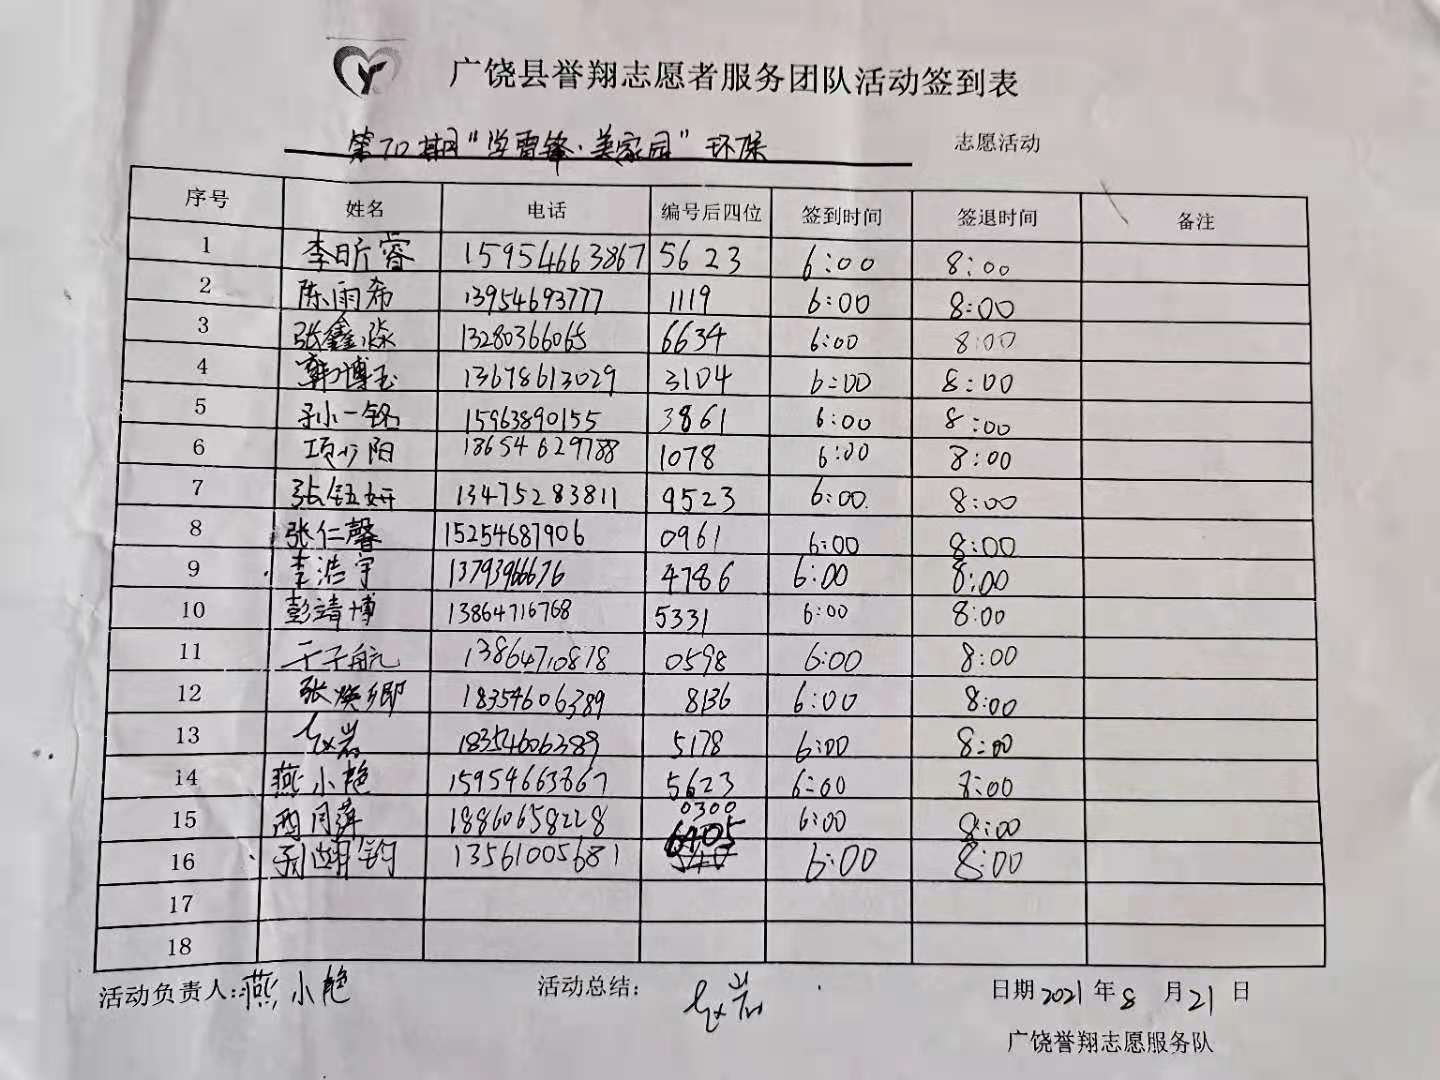 广饶县誉翔志愿者服务团队活动签到表
第70期“学雷锋·美家园”环保 志愿活动
序号 姓名 电话 编号后四位 签到时间 签退时间 备注
1 李昕睿 15954663867 5623 6:00 8:00
2 陈雨希 13954693777 1119 6:00 8:00
3 张鑫淼 13280366065 6634 6:00 8:00
4 韩博玉 13678613029 3104 6:00 8:00
5 孙一铭 15963890155 3861 6:00 8:00
6 项少阳 18654629788 1078 6:00 8:00
7 张钰妍 13475283811 9523 6:00 8:00
8 张仁馨 15254687906 0961 6:00 8:00
9 李浩宇 13793966676 4786 6:00 8:00
10 彭靖博 13864716768 5331 6:00 8:00
11 于子航 13864710878 0598 6:00 8:00
12 张焕卿 18354606389 8136 6:00 8:00
13 赵岩 18354606389 5178 6:00 8:00
14 燕小艳 15954663867 5623 6:00 8:00
15 月萍 18860658228 0300 6:00 8:00
16 钧 13561005681 6405 6:00 8:00
17
18
活动负责人:燕小艳 活动总结: 赵岩 日期2021年8月21日
广饶誉翔志愿服务队